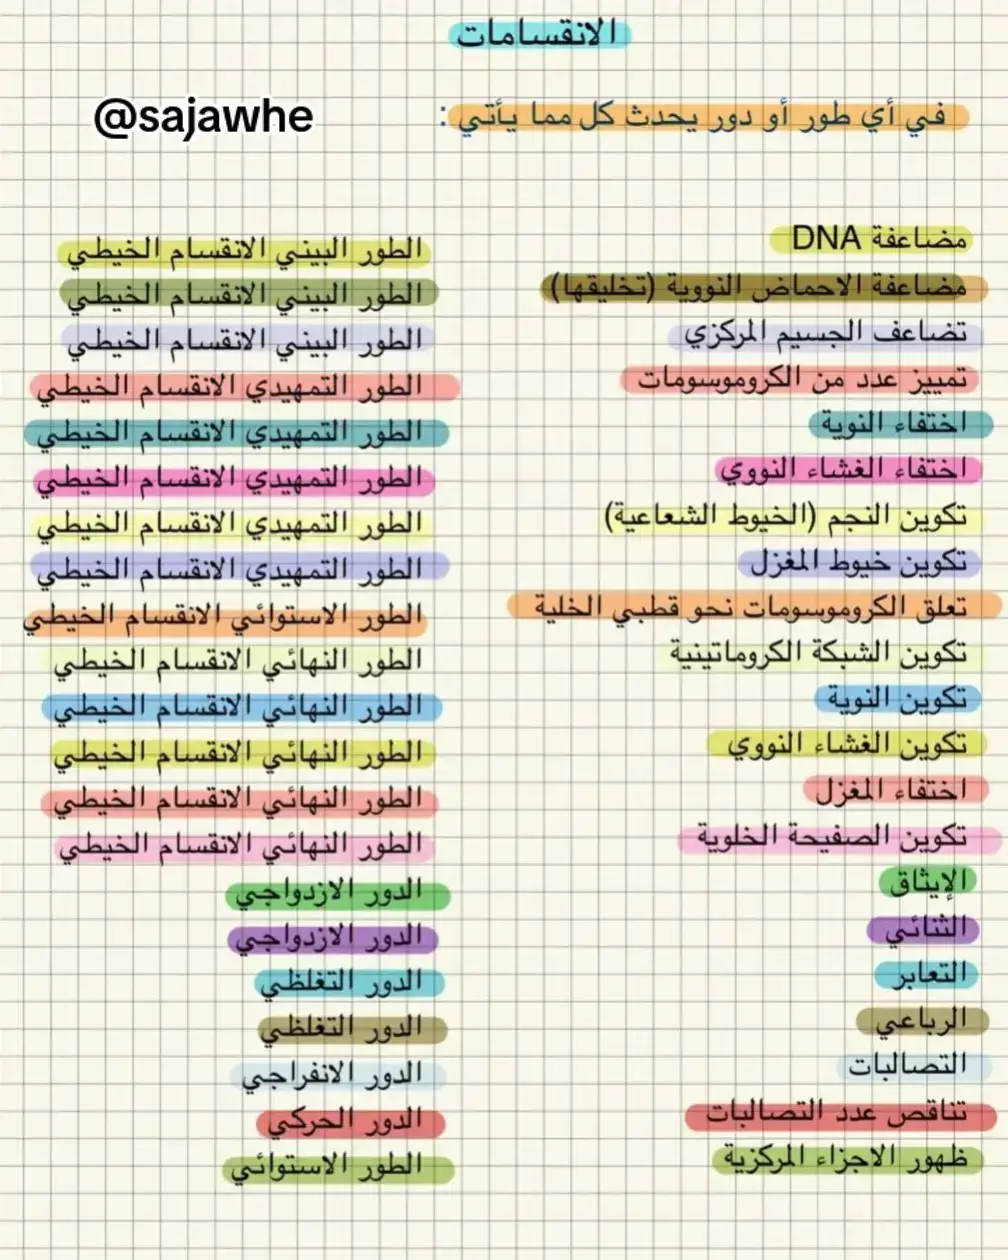 الانقسامات
في أي طور أو دور يحدث كل مما يأتي :
@sajawhe
مضاعفة DNA الطور البيني الانقسام الخيطي
مضاعفة الاحماض النووية (تخليقها) الطور البيني الانقسام الخيطي
تضاعف الجسيم المركزي الطور البيني الانقسام الخيطي
تمييز عدد من الكروموسومات الطور التمهيدي الانقسام الخيطي
اختفاء النوية الطور التمهيدي الانقسام الخيطي
اختفاء الغشاء النووي الطور التمهيدي الانقسام الخيطي
تكوين النجم (الخيوط الشعاعية) الطور التمهيدي الانقسام الخيطي
تكوين خيوط المغزل الطور التمهيدي الانقسام الخيطي
تعلق الكروموسومات نحو قطبي الخلية الطور الاستوائي الانقسام الخيطي
تكوين الشبكة الكروماتينية الطور النهائي الانقسام الخيطي
تكوين النوية الطور النهائي الانقسام الخيطي
تكوين الغشاء النووي الطور النهائي الانقسام الخيطي
اختفاء المغزل الطور النهائي الانقسام الخيطي
تكوين الصفيحة الخلوية الطور النهائي الانقسام الخيطي
الإيثاق الدور الازدواجي
الثنائي الدور الازدواجي
التعابر الدور التغلظي
الرباعي الدور التغلظي
التصالبات الدور الانفراجي
تناقص عدد التصالبات الدور الحركي
ظهور الاجزاء المركزية الطور الاستوائي